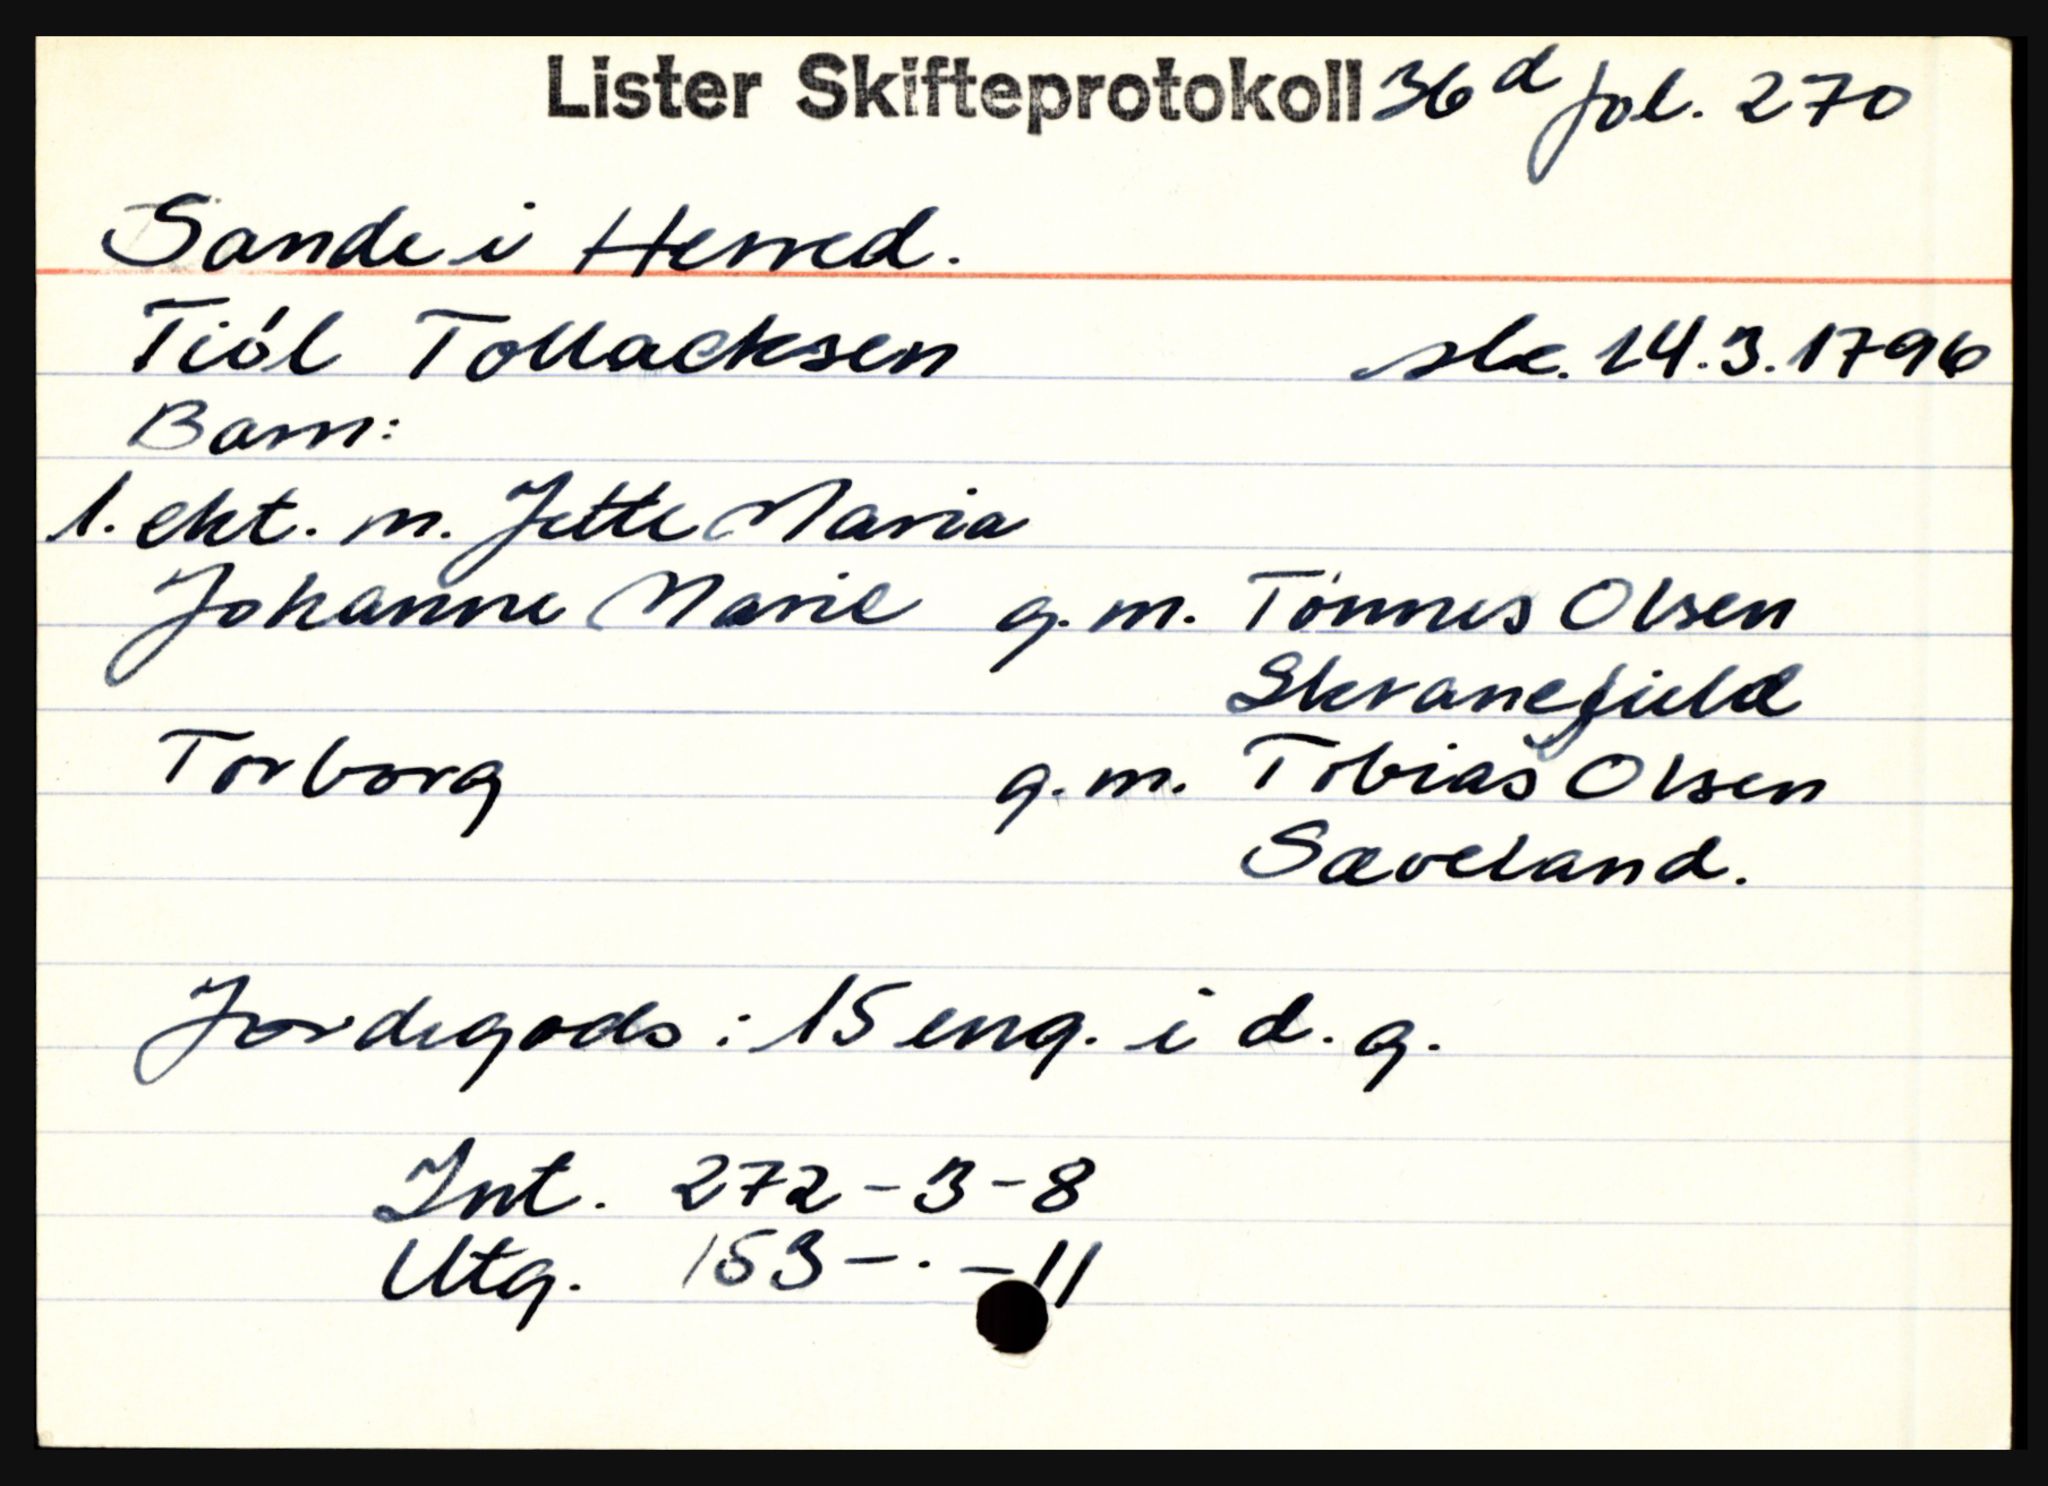 Lister Skifteprotokoll 36 d fol. 270
Sande i Herred.
Tiöl Tollacksen sk. 14.3.1796
Barn:
1. ekt. m. Jette Maria
Johanne Marie g.m. Tönnes Olsen
Skranefield
Torborg g.m. Tobias Olsen
Sæveland.
Jordegods: 15 eng. i d. g.
Int. 272-3-8
Utg. 153-.-11